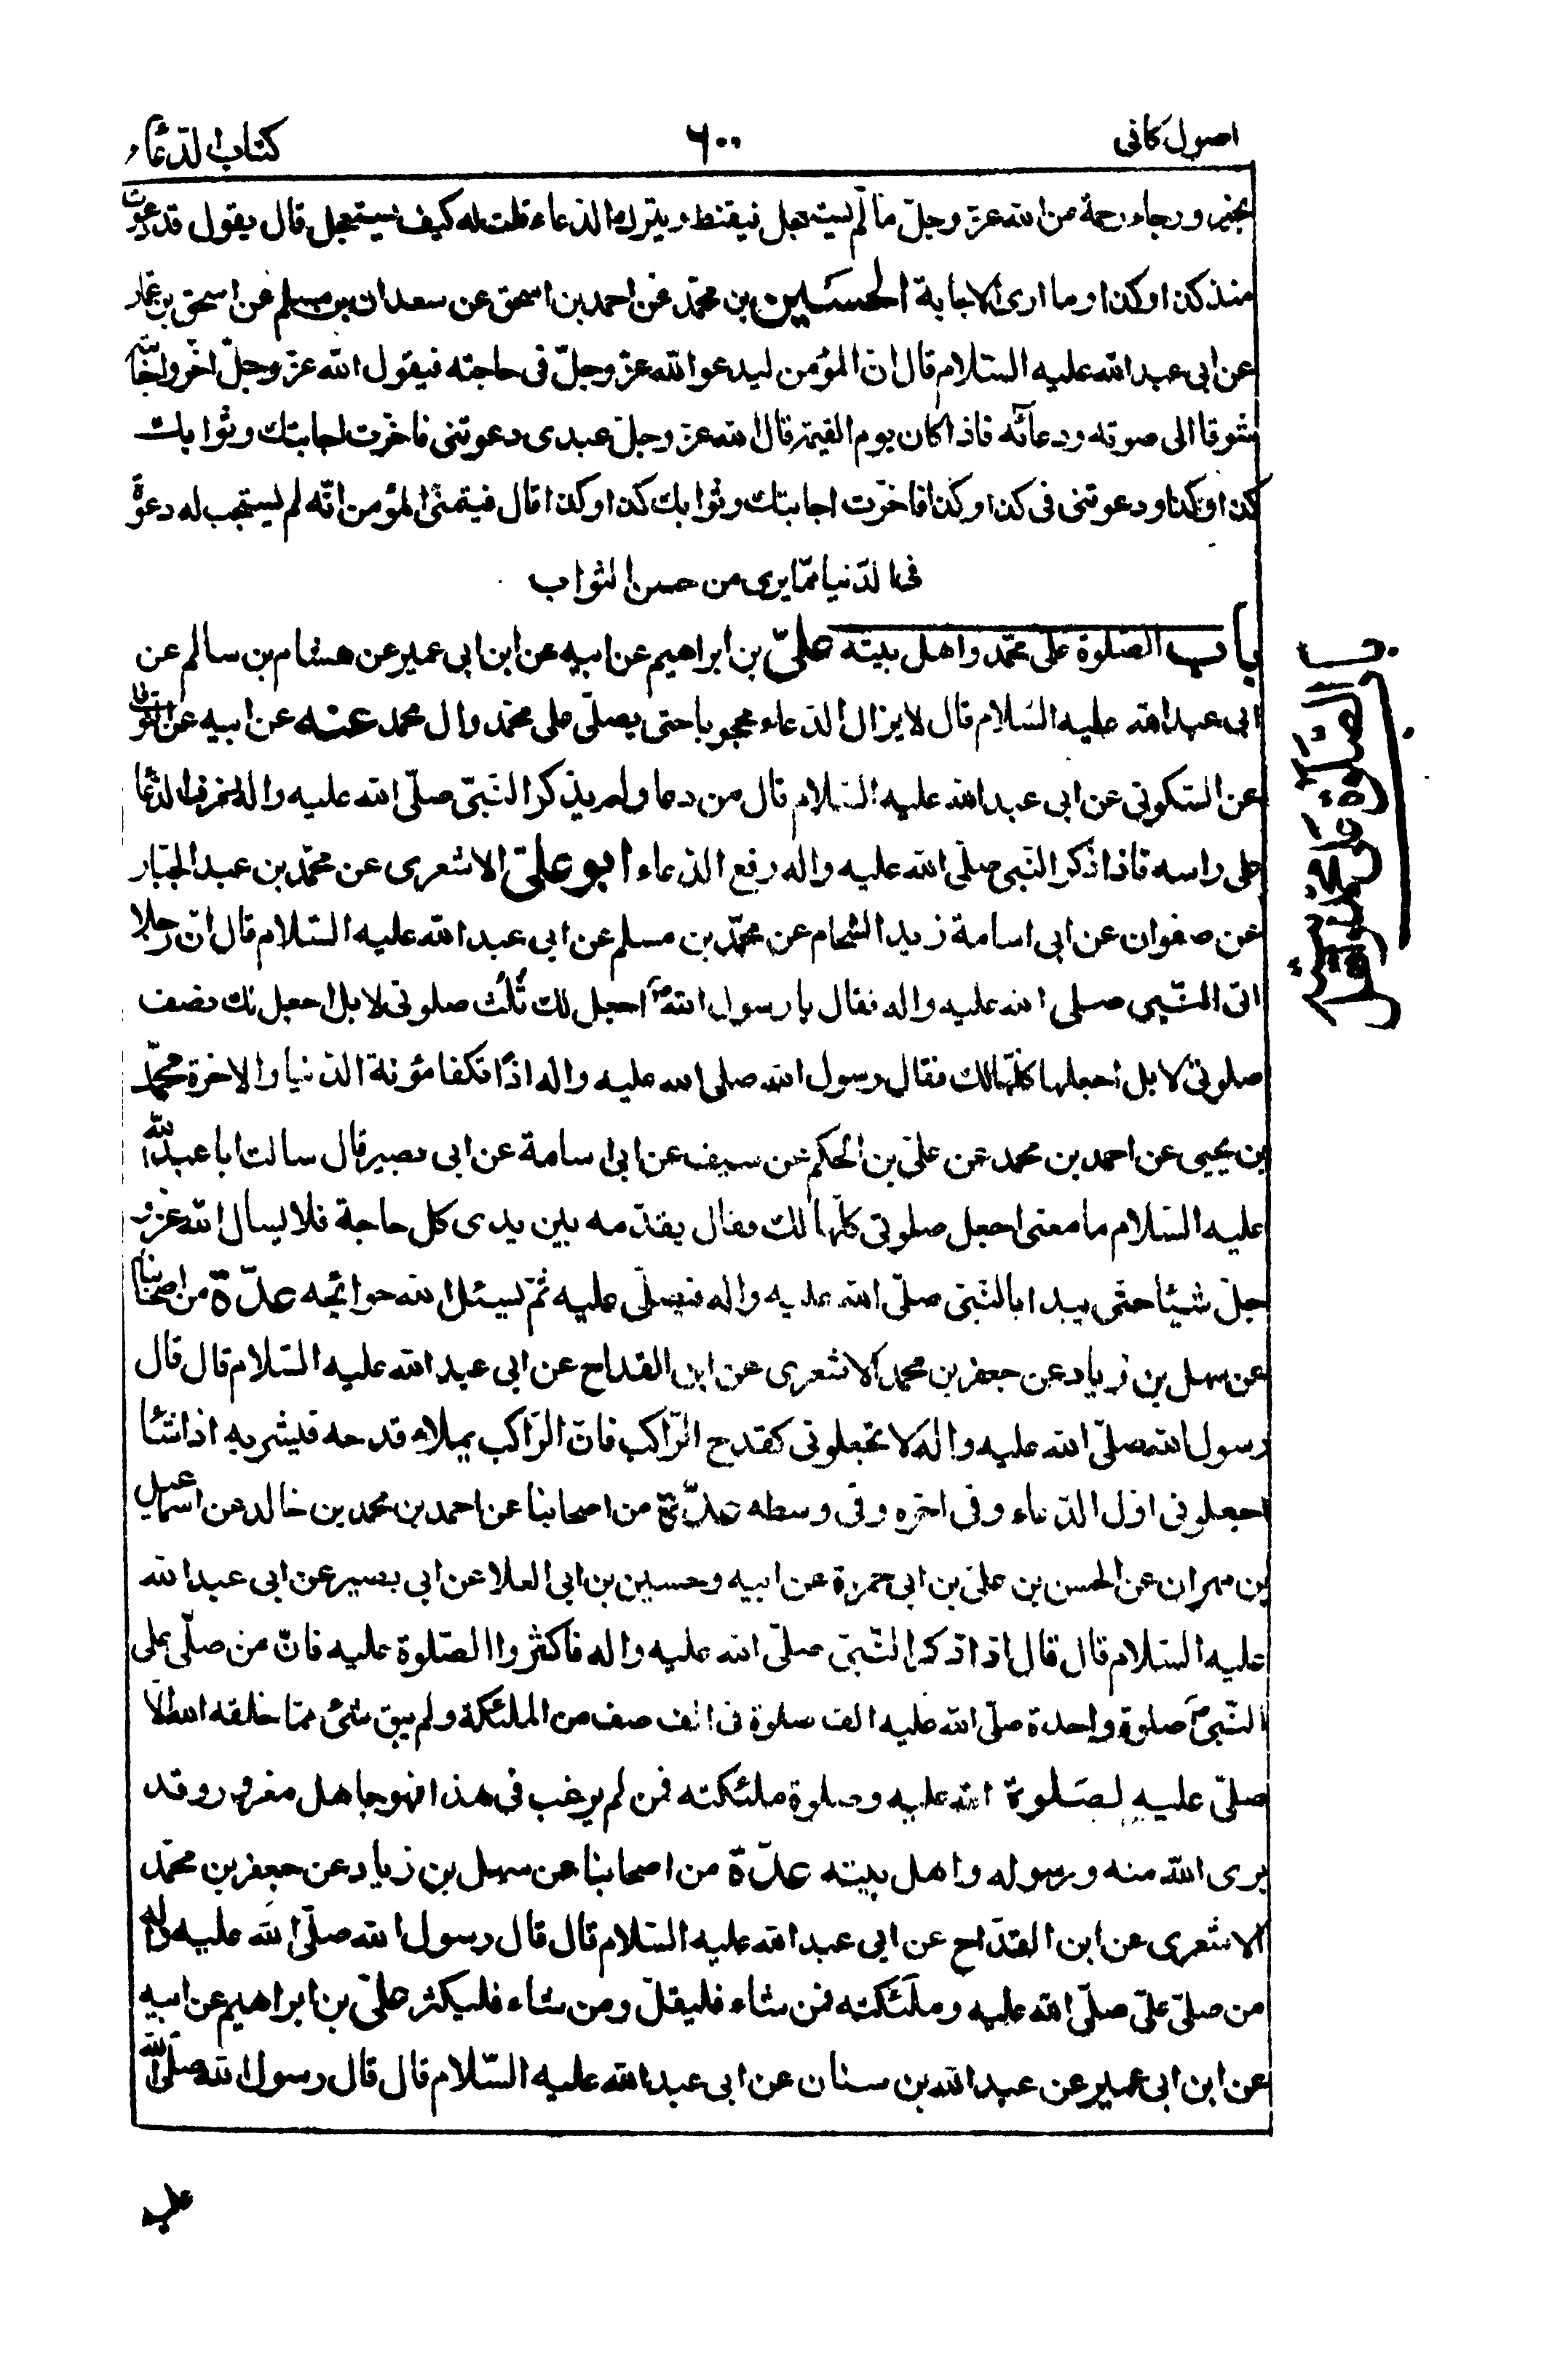 اصول كافى
٦٠٠
كتاب الدّعاء
بخير ورجاء رحمة من الله عزّ وجلّ ما لم يستعجل فيقنط ويترك الدّعاء قلت له كيف يستعجل قال يقول قد دعوت
منذ كذا وكذا وما ارى الاجابة الحسين بن محمّد عن احمد بن اسحق عن سعدان بن مسلم عن اسحق بن عمّار
عن ابى عبد الله عليه السّلام قال انّ المؤمن ليدعو الله عزّ وجلّ فى حاجته فيقول الله عزّ وجلّ اخّروا اجابته
شوقا الى صوته ودعائه فاذا كان يوم القيمة قال الله عزّ وجلّ عبدى دعوتنى فاخّرت اجابتك وثوابك
كذا وكذا ودعوتنى فى كذا وكذا فاخّرت اجابتك وثوابك كذا وكذا قال فيتمنّى المؤمن انّه لم يستجب له دعوة
فى الدّنيا ممّا يرى من حسن الثواب
باب الصّلوة على محمّد واهل بيته علىّ بن ابراهيم عن ابيه عن ابن ابى عمير عن هشام بن سالم عن
ابى عبد الله عليه السّلام قال لا يزال الدّعاء محجوبا حتى يصلّى على محمّد وال محمد عنه عن ابيه عن النوفلى
عن السّكونى عن ابى عبد الله عليه السّلام قال من دعا ولم يذكر النّبىّ صلّى الله عليه واله رفرف الدّعا
على راسه فاذا ذكر النّبى صلّى الله عليه واله رفع الدّعاء ابو علىّ الاشعرى عن محمّد بن عبد الجبّار
عن صفوان عن ابى اسامة زيد الشّحام عن محمّد بن مسلم عن ابى عبد الله عليه السّلام قال انّ رجلا
اتى النّبى صلى الله عليه واله فقال يا رسول الله اجعل لك ثُلُث صلوتى لا بل اجعل لك نصف
صلوتى لا بل اجعلها كلّها لك فقال رسول الله صلى الله عليه واله اذًا تكفا مؤنة الدّنيا والاخرة محمّد
بن يحيى عن احمد بن محمد عن علىّ بن الحكم عن سيف عن ابى اسامة عن ابى بصير قال سالت ابا عبد الله
عليه السّلام ما معنى اجعل صلوتى كلّها لك فقال يقدّمه بين يدى كل حاجة فلا يسال الله عزّ و
جلّ شيئا حتّى يبدا بالنّبىّ صلّى الله عليه واله فيصلّى عليه ثمّ يسئل الله حوائجه عدّة من اصحابنا
عن سهل بن زياد عن جعفر بن محمد الاشعرى عن ابن القداح عن ابى عبد الله عليه السّلام قال قال
رسول الله صلّى الله عليه واله لا تجعلونى كقدح الرّاكب فانّ الرّاكب يملاء قدحه فيشربه اذا شاء
اجعلونى فى اوّل الدّعاء وفى اخره وفى وسطه عدّة من اصحابنا عن احمد بن محمد بن خالد عن اسمعيل
بن مهران عن الحسن بن علىّ بن ابى حمزة عن ابيه وحسين بن ابى العلا عن ابى بصير عن ابى عبد الله
عليه السّلام قال قال اذا ذكر النّبىّ صلّى الله عليه واله فاكثروا الصّلوة عليه فانّ من صلّى على
النّبىّ صلوة واحدة صلّى الله عليه الف صلوة فى الف صف من الملئكة ولم يبق شئ ممّا خلقه الله الّا
صلّى عليه لصلوة الله عليه وصلوة ملئكته فمن لم يرغب فى هذا فهو جاهل مغرور وقد
برى الله منه ورسوله واهل بيته عدّة من اصحابنا عن سهل بن زياد عن جعفر بن محمّد
الاشعرى عن ابن القدّاح عن ابى عبد الله عليه السّلام قال قال رسول الله صلّى الله عليه واله
من صلّى علىّ صلّى الله عليه وملئكته فمن شاء فليقلّ ومن شاء فليكثر علىّ بن ابراهيم عن ابيه
عن ابن ابى عمير عن عبد الله بن سنان عن ابى عبد الله عليه السّلام قال قال رسول الله صلّى الله
عليه